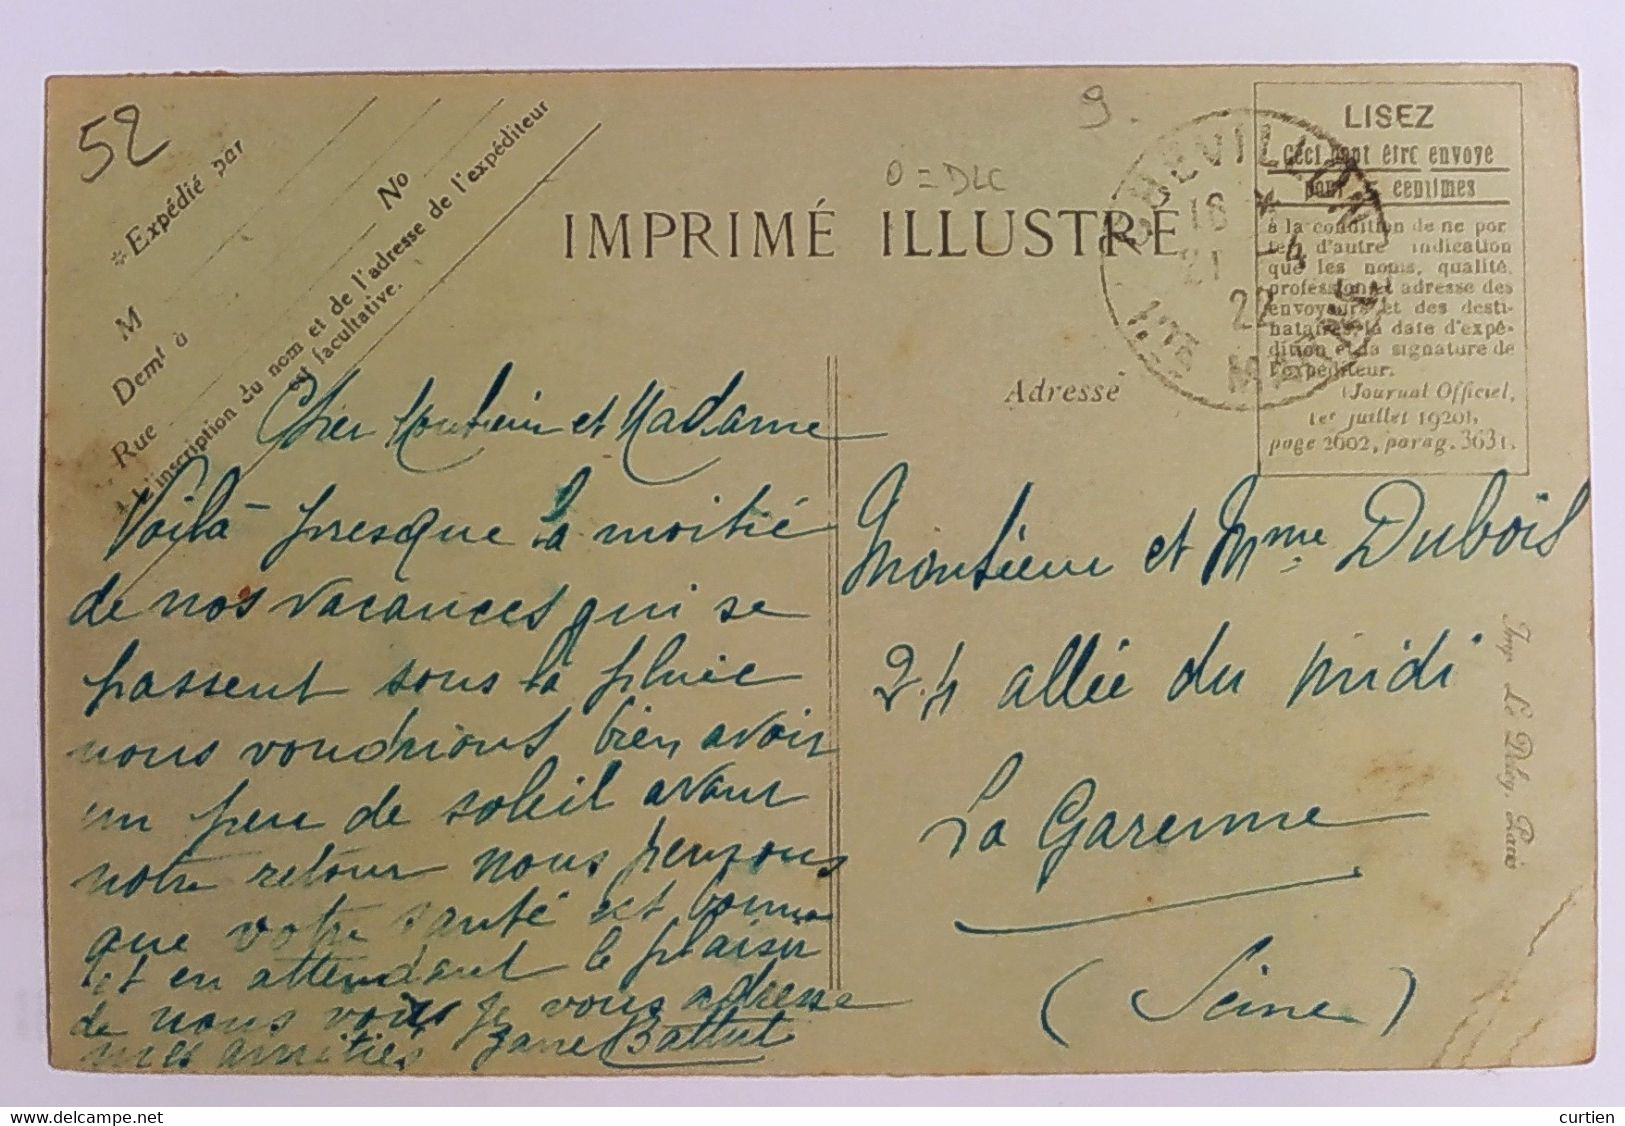 52
9.
0 = DLC
* Expédié par
M
Demt à
Rue
No
* L'inscription du nom et de l'adresse de l'expéditeur
est facultative.
IMPRIMÉ ILLUSTRÉ
CHEVILLON
18 *
21 - 4
22
HTE MARNE
LISEZ
Ceci peut être envoyé
pour 5 centimes
à la condition de ne por
ter d'autre indication
que les noms, qualité,
profession et adresse des
envoyeurs et des desti-
nataires, la date d'expé-
dition et la signature de
l'expéditeur.
(Journal Officiel,
1er juillet 1920),
page 2602, parag. 3631.
Adresse
Cher Monsieur et Madame
Voilà presque la moitié
de nos vacances qui se
passent sous la pluie
nous voudrions bien avoir
un peu de soleil avant
notre retour nous pensons
que votre santé est bonne
et en attendant le plaisir
de nous voir je vous adresse
mes amitiés Jane Battut
Monsieur et Mme Dubois
24 allée du midi
La Garenne
(Seine)
Imp. Le Deley, Paris
delcampe.net
curtien